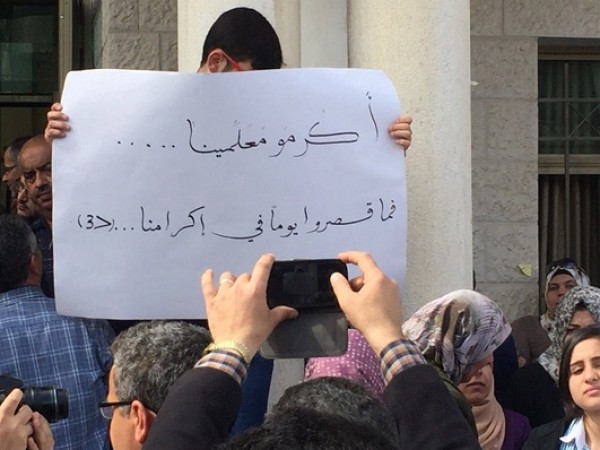 أكرمو معلمينا .....
فما قصروا يوماً في إكرامنا ...(د3)